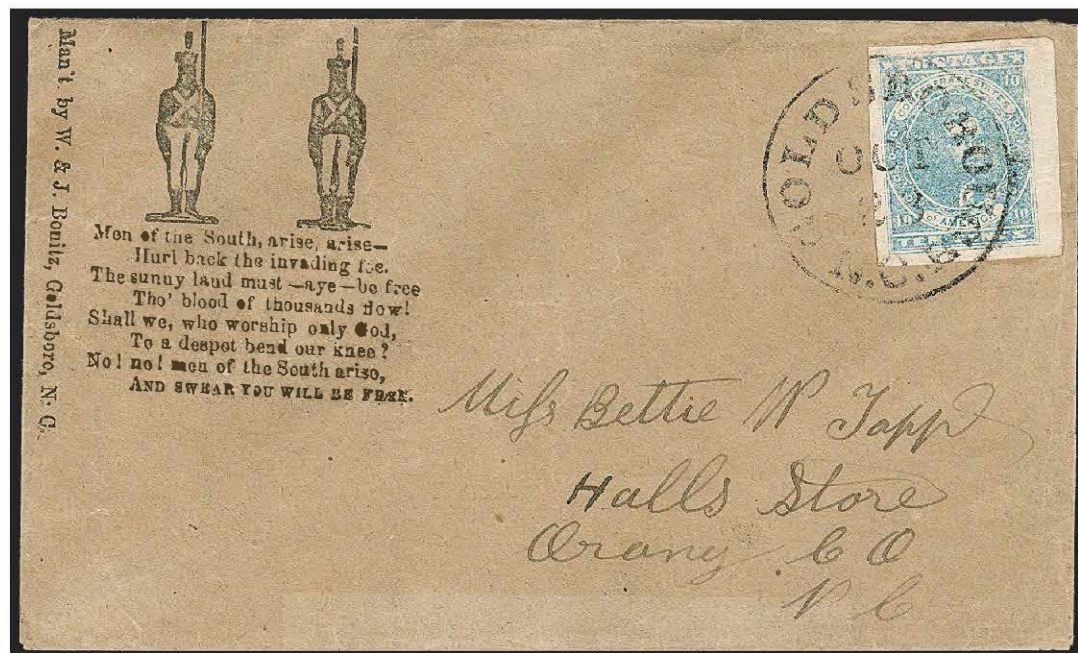 Man't. by W. & J. Bonitz, Goldsboro, N. C.
Men of the South, arise, arise—
Hurl back the invading foe.
The sunny land must—aye—be free
Tho' blood of thousands flow!
Shall we, who worship only God,
To a despot bend our knee?
No! no! men of the South arise,
AND SWEAR YOU WILL BE FREE.
GOLDSBOROUGH
OCT
N.C.
POSTAGE
10
CONFEDERATE STATES
OF AMERICA
10 10
TEN CENTS
Miss Bettie W Tapp
Halls Store
Orang CO
N C